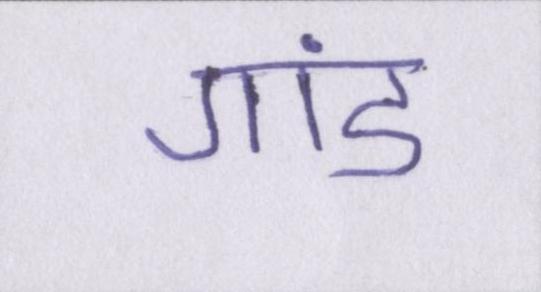 गांड